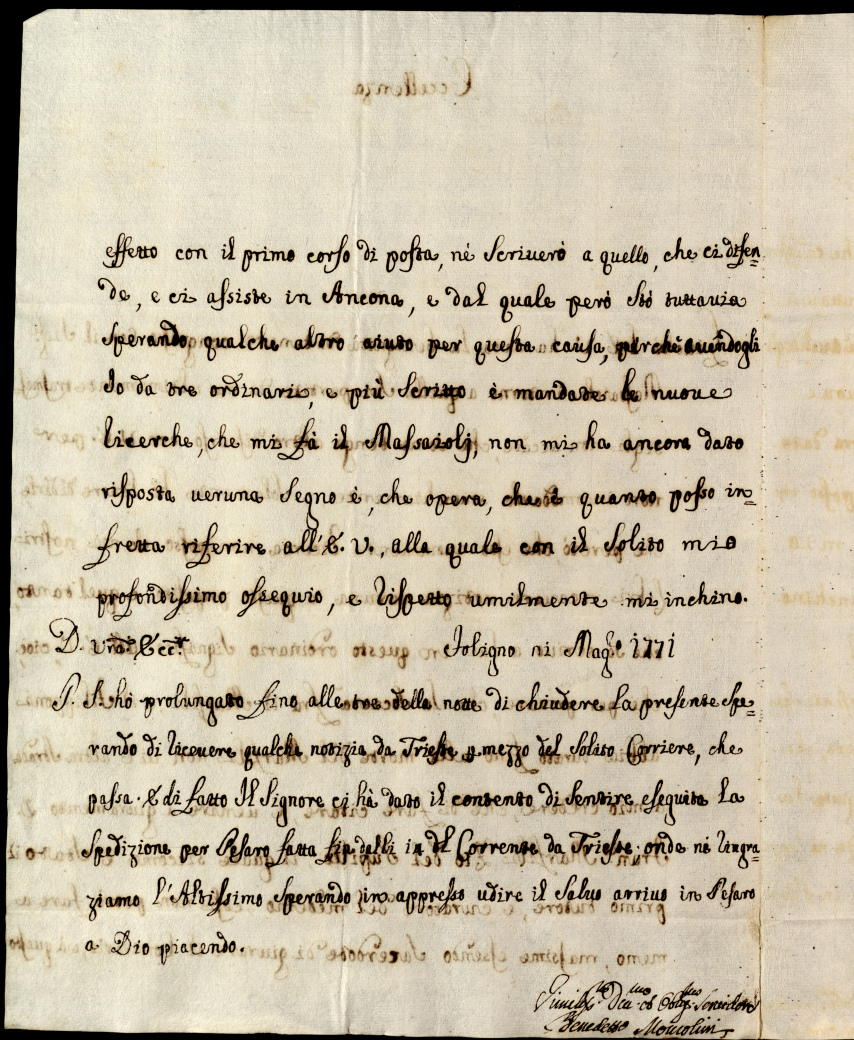 effetto con il primo corso di posta, né scriverò a quello, che ci difen=
de, e ci assiste in Ancona, e dal quale però stò tuttavia
sperando qualche altro aiuto per questa causa, perchè avendogli
Io da tre ordinarii, e più scritto è mandate le nuove
ricerche, che mi fà il Massaiolj, non mi ha ancora dato
risposta veruna segno è, che opera, che è quanto posso in=
fretta riferire all'E. V., alla quale con il solito mio
profondissimo ossequio, e rispetto umilmente mi inchino.
D. Vrã Eccã Foligno Magg.º 1771
P. S. hò prolungato fino alle tre della notte di chiudere la presente spe=
rando di ricevere qualche notizia da Trieste p mezzo del solito Corriere, che
passa. E di fatto Il Signore ci hà dato il contento di sentire eseguita la
spedizione per Pesaro fatta fin delli del Corrente da Trieste; onde né ringra=
ziamo l'Altissimo sperando in appresso udire il salvo arrivo in Pesaro
a Dio piacendo.
Umilss.mo Dev.mo ed Obblig.mo Servidore
Benedetto